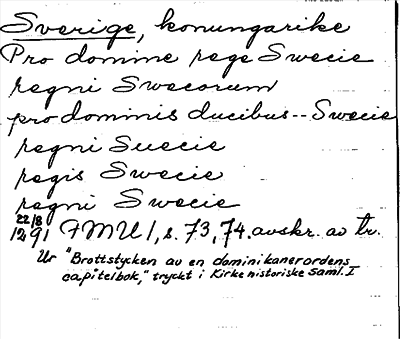 Sverige, konungarike
Pro domine rege Swecie
regni Swecorum
pro dominis ducibus -- Swecie
regni Suecie
regis Swecie
regni Swecie
22/8
1291 FMU 1, s. 73, 74. avskr. av tr.
Ur "Brottstycken av en dominikanerordens
capitelbok," tryckt i Kirkehistoriske Saml. I